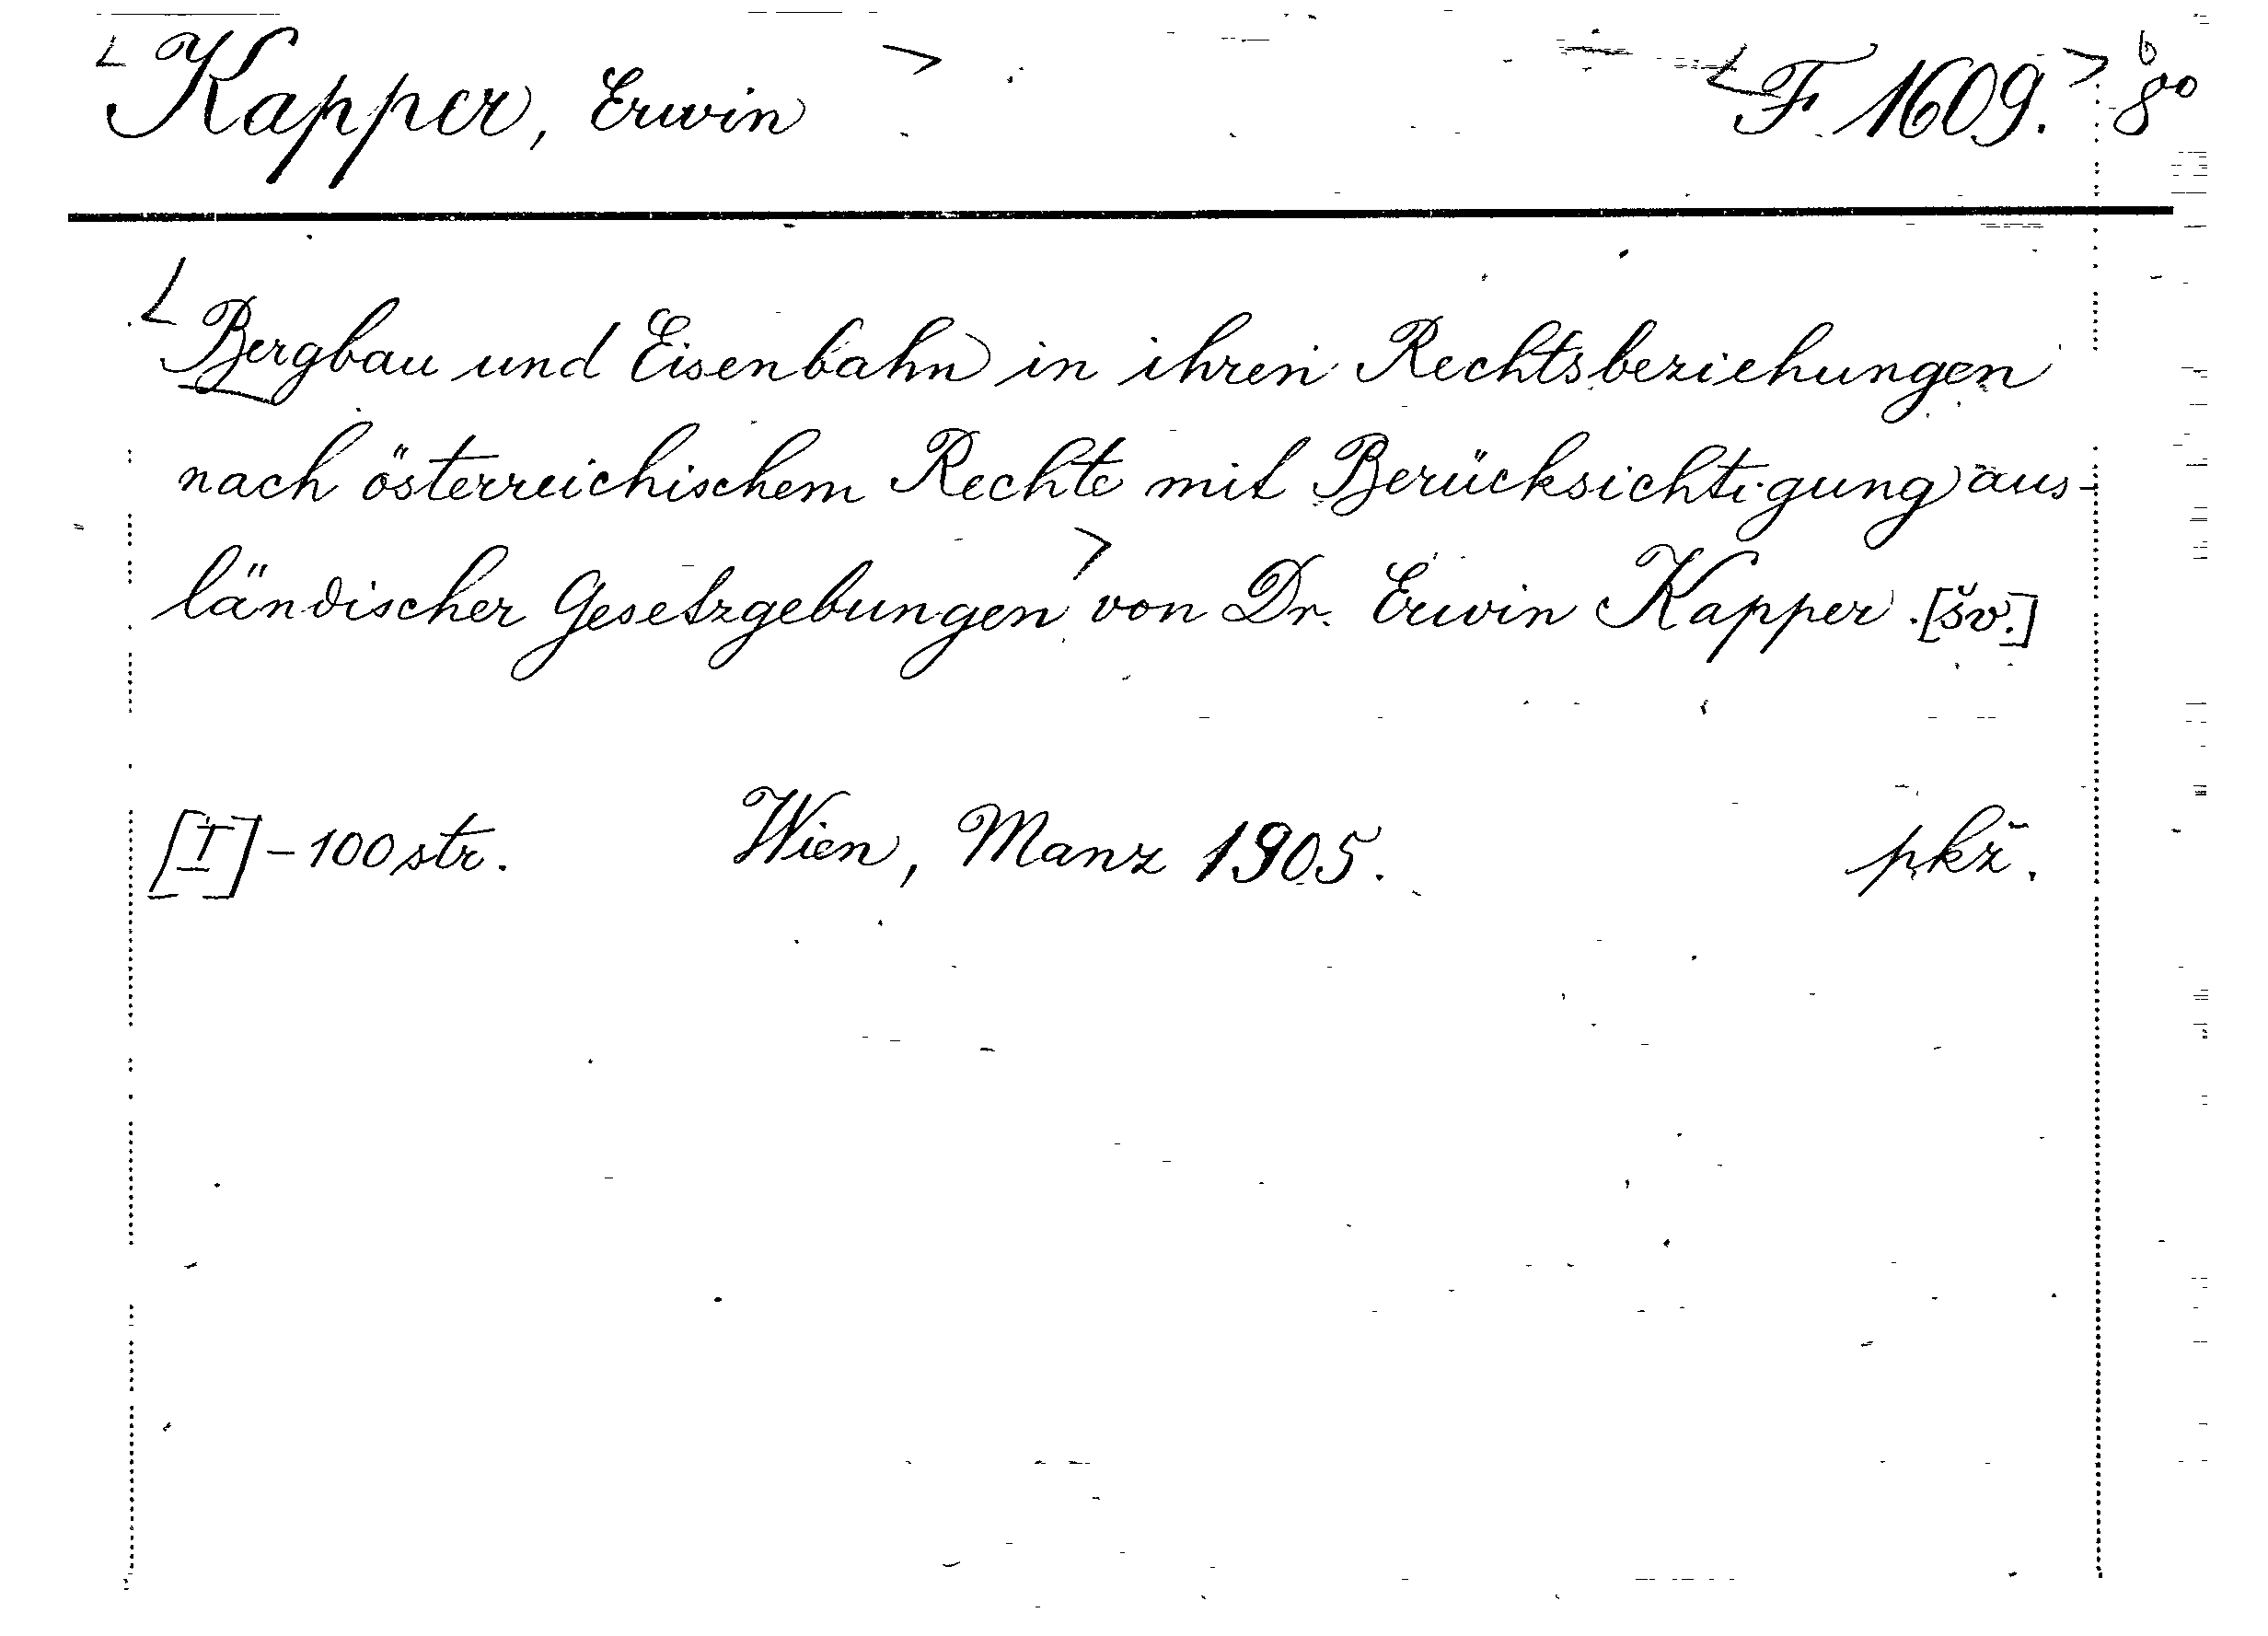 <Kapper, Erwin> <F 1609.> 8° 6
<Bergbau und Eisenbahn in ihren Rechtsbeziehungen
nach österreichischem Rechte mit Berücksichtigung aus-
ländischer Gesetzgebungen> von Dr. Erwin Kapper. [šv.]
[I] - 100 str. Wien, Manz 1905. pkž.